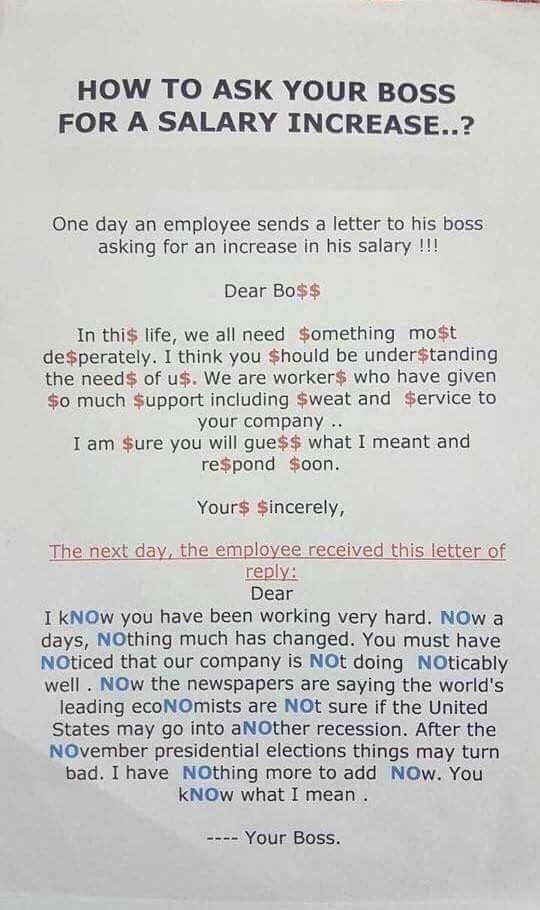 HOW TO ASK YOUR BOSS
FOR A SALARY INCREASE..?
One day an employee sends a letter to his boss
asking for an increase in his salary !!!
Dear Bo$$
In thi$ life, we all need $omething mo$t
de$perately. I think you $hould be under$tanding
the need$ of u$. We are worker$ who have given
$o much $upport including $weat and $ervice to
your company ..
I am $ure you will gue$$ what I meant and
re$pond $oon.
Your$ $incerely,
The next day, the employee received this letter of
reply:
Dear
I kNOw you have been working very hard. NOw a
days, NOthing much has changed. You must have
NOticed that our company is NOt doing NOticably
well . NOw the newspapers are saying the world's
leading ecoNOmists are NOt sure if the United
States may go into aNOther recession. After the
NOvember presidential elections things may turn
bad. I have NOthing more to add NOw. You
kNOw what I mean .
---- Your Boss.